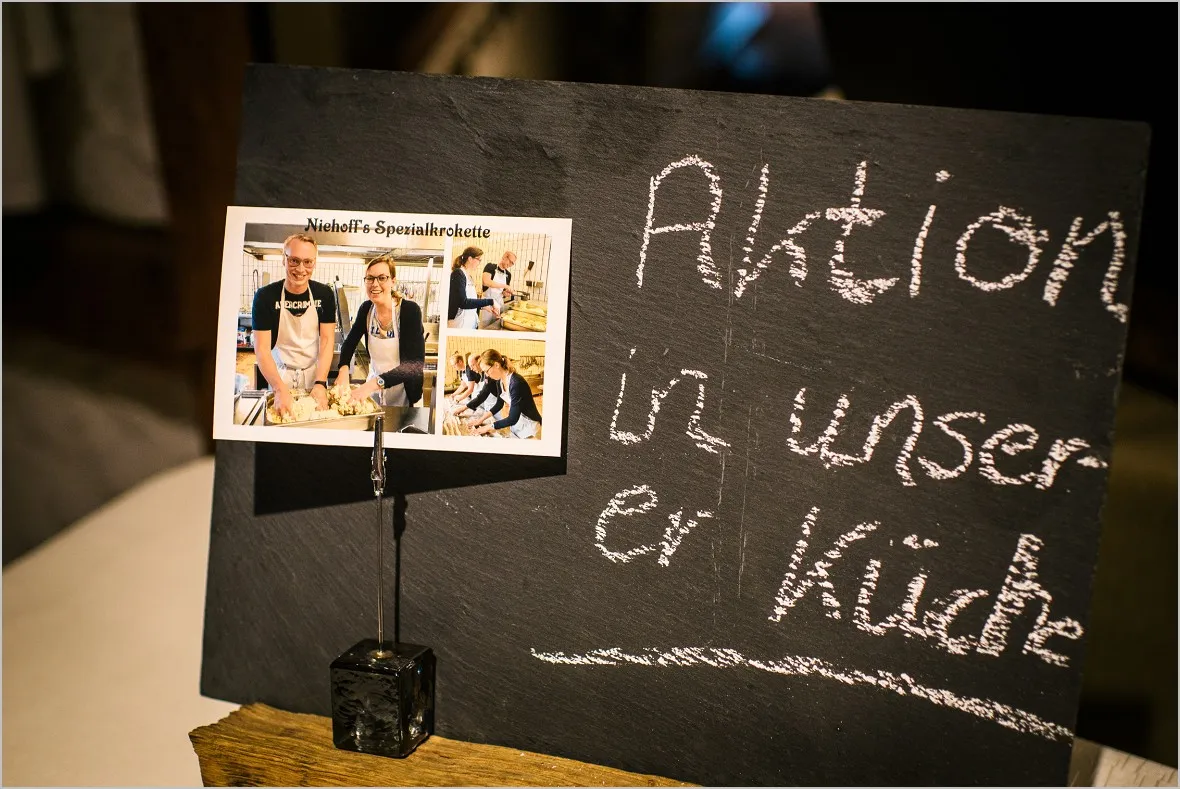 Niehoff's Spezialkrokette
ABERCROMBIE
Aktion
in unser
er Küche